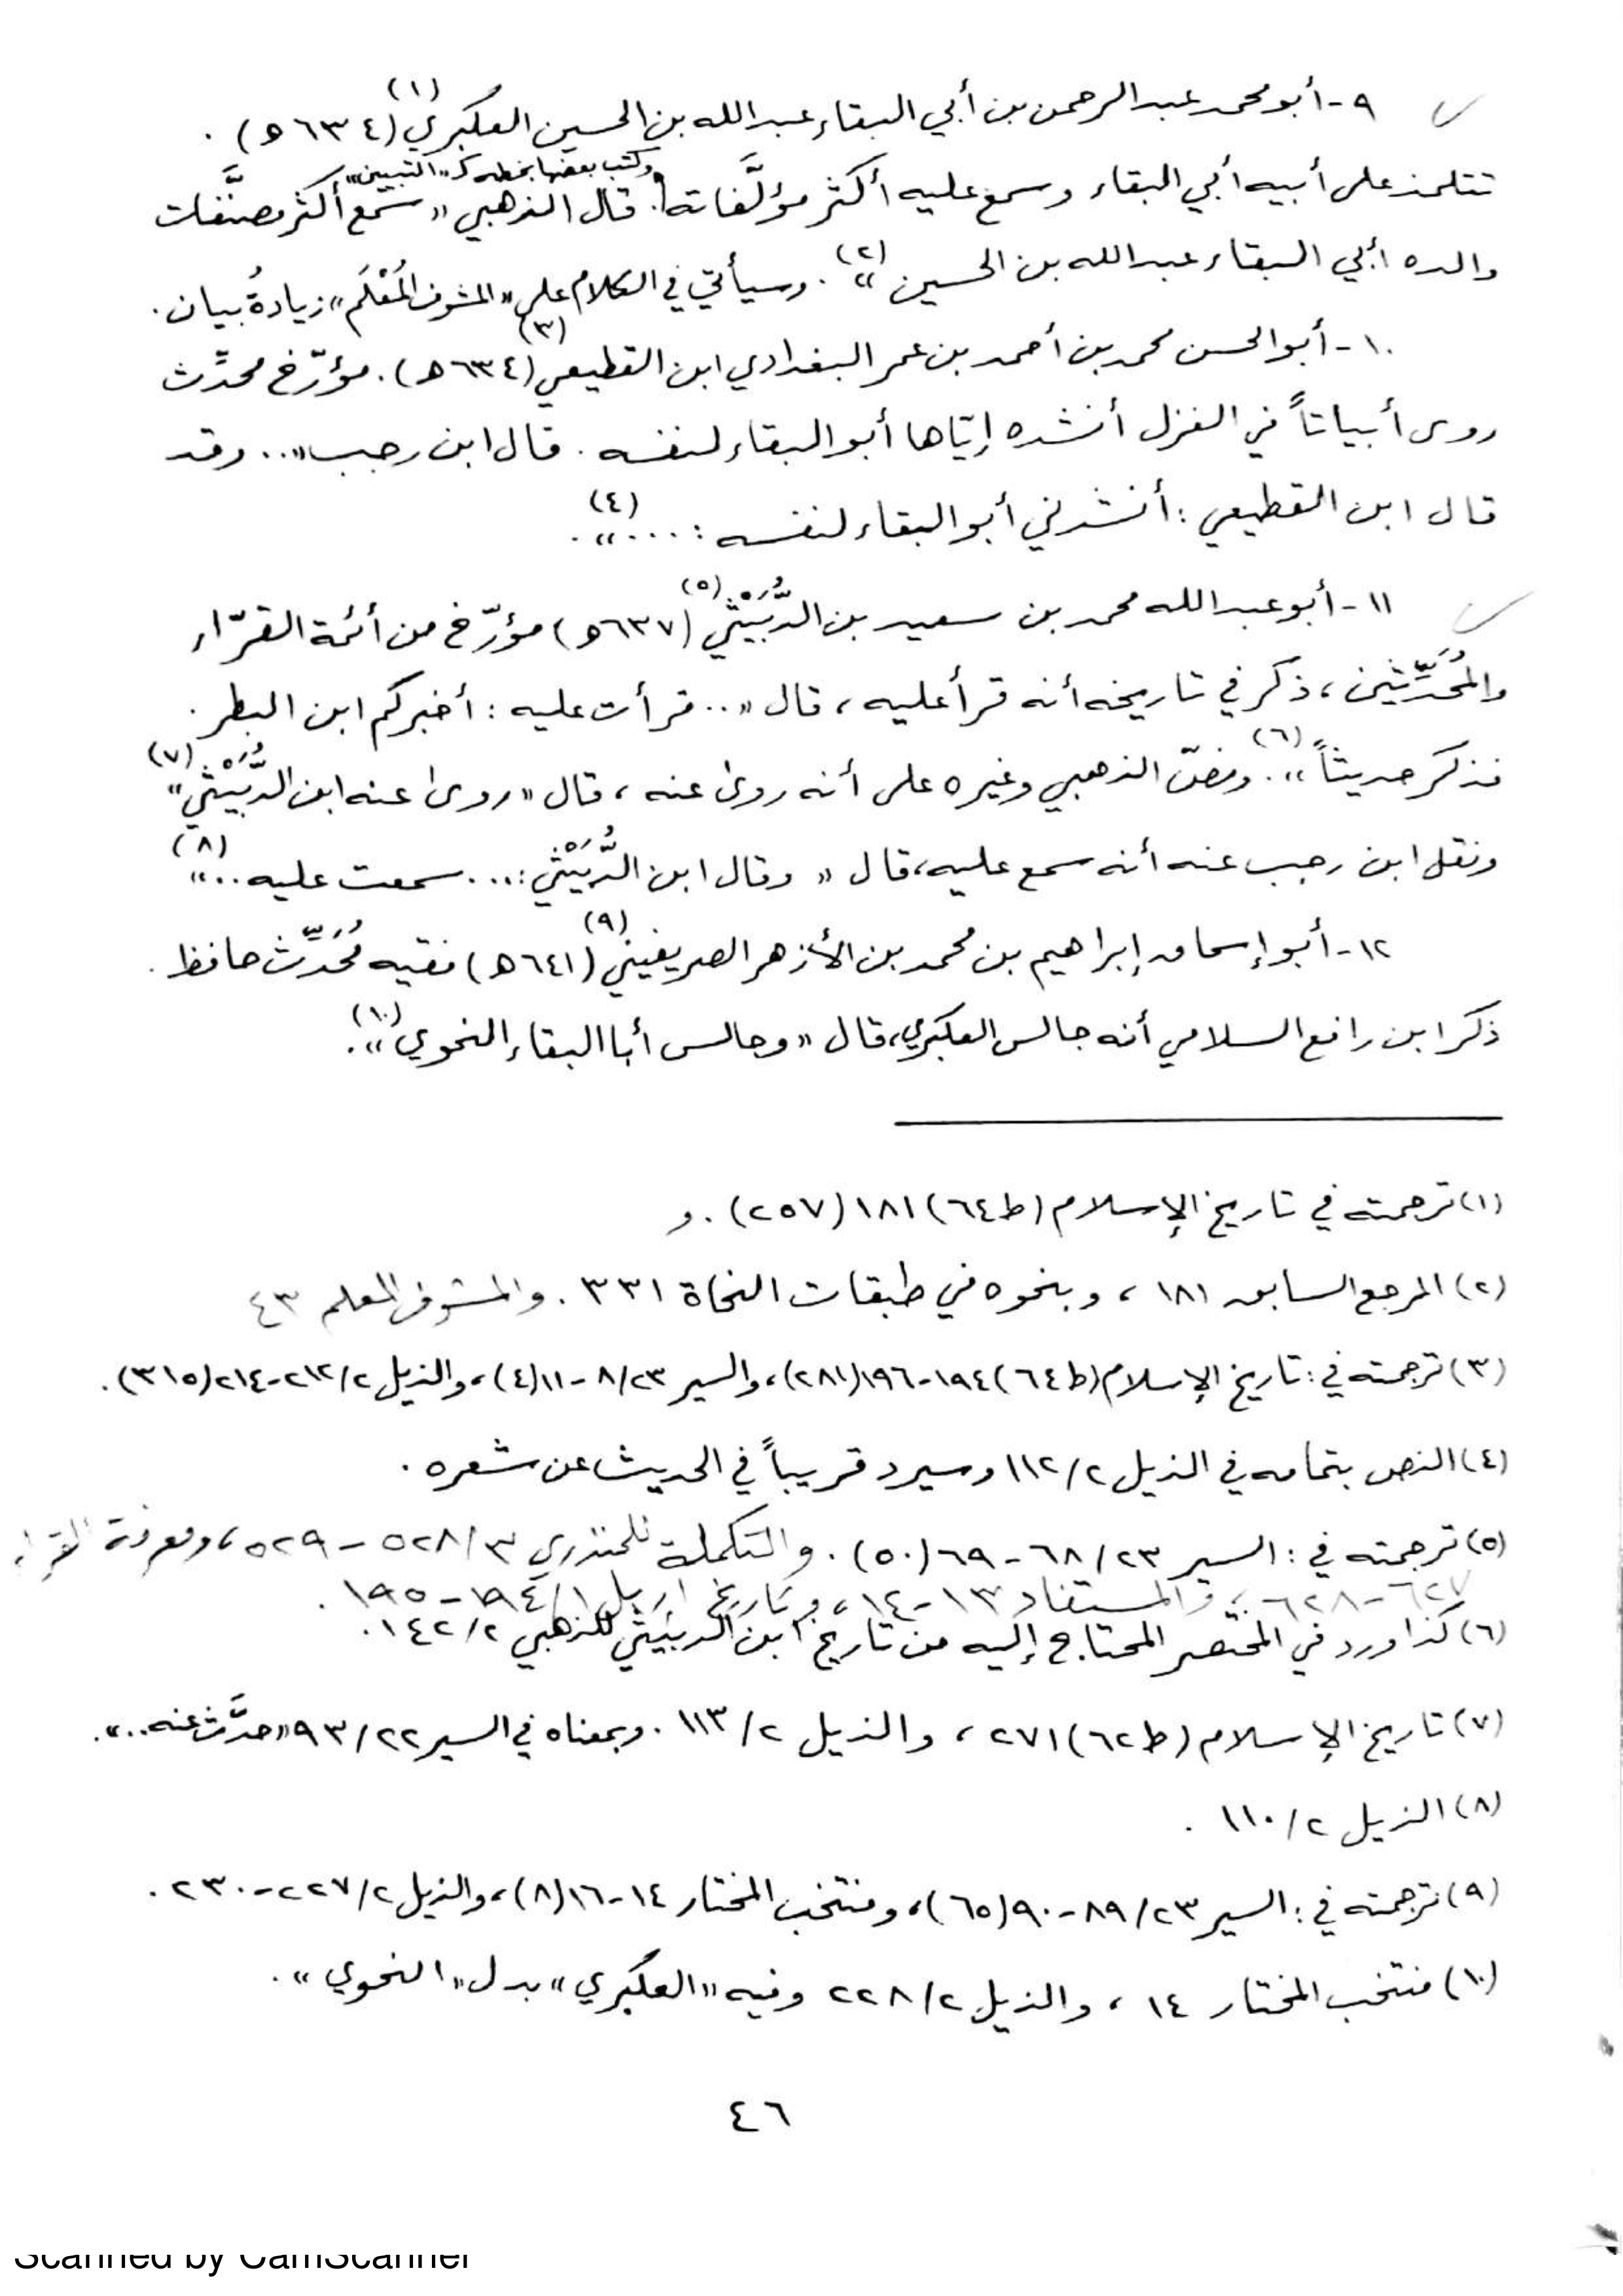 ٩- أبو محمد عبد الرحمن بن أبي البقاء عبد الله بن الحسين العكبري (١) (٦٣٤ هـ) .
وكتب بعضها بخطه كـ "التبيين"
تتلمذ على أبيه أبي البقاء وسمع عليه أكثر مؤلَّفاته. قال الذهبي «سمع أكثر مصنَّفات
والده أبي البقاء عبد الله بن الحسين» (٢) . وسيأتي في الكلام على «المشوف المُعْلَم» زيادةُ بيان .
١٠- أبو الحسن محمد بن أحمد بن عمر البغدادي ابن القطيعي (٣) (٦٣٤ هـ) . مؤرّخ محدِّث
روى أبياتاً في الغزل أنشده إيّاها أبو البقاء لنفسه . قال ابن رجب «.. وقد
قال ابن القطيعي : أنشدني أبو البقاء لنفسه : ...» (٤) .
١١- أبو عبد الله محمد بن سعيد بن الدُّبَيْثي (٥) (٦٣٧ هـ) مؤرّخ من أئمة القرّاء
والمُحَدِّثين ، ذكر في تاريخه أنه قرأ عليه ، قال «.. قرأت عليه : أخبركم ابن البطر .
فذكر حديثاً» (٦) . ونصّ الذهبي وغيره على أنه روى عنه ، قال «روى عنه ابن الدُّبَيْثي» (٧)
ونقل ابن رجب عنه أنه سمع عليه، قال « وقال ابن الدُّبَيْثي : ... سمعت عليه ..» (٨)
١٢- أبو إسحاق إبراهيم بن محمد بن الأزهر الصريفيني (٩) (٦٤١ هـ) فقيه مُحَدِّث حافظ .
ذكر ابن رافع السلامي أنه جالس العكبري، قال «وجالس أبا البقاء النحوي» (١٠) .
(١) ترجمته في تاريخ الإسلام (ط ٦٤) ١٨١ (٢٥٧) . و
(٢) المرجع السابق ١٨١ ، وبنحوه في طبقات النحاة ٣٣١ . والمشوف المعلم ٤٣
(٣) ترجمته في : تاريخ الإسلام (ط ٦٤) ١٩٤-١٩٦ (٢٨١) ، والسير ٢٣/ ٨-١١ (٤) ، والذيل ٢/ ٢١٢-٢١٤ (٣١٥) .
(٤) النص بتمامه في الذيل ٢/ ١١٢ وسيرد قريباً في الحديث عن شعره .
(٥) ترجمته في : السير ٢٣/ ٦٨-٦٩ (٥٠) . والتكملة للمنذري ٣/ ٥٢٨-٥٢٩ ، ومعرفة القراء
٦٢٧-٦٢٨ ، والمستفاد ١٣-١٤ ، وتاريخ اربل ١/ ١٩٤-١٩٥ .
(٦) كذا ورد في المختصر المحتاج إليه من تاريخ ابن الدبيثي للذهبي ٢/ ١٤٢ .
(٧) تاريخ الإسلام (ط ٦٢) ٢٧١ ، والذيل ٢/ ١١٣ . وبمعناه في السير ٢٢/ ٩٣ «حدَّث عنه ..» .
(٨) الذيل ٢/ ١١٠ .
(٩) ترجمته في : السير ٢٣/ ٨٩-٩٠ (٦٥) ، ومنتخب المختار ١٤-١٦ (٨) ، والذيل ٢/ ٢٢٧-٢٣٠ .
(١٠) منتخب المختار ١٤ ، والذيل ٢/ ٢٢٨ وفيه «العكبري» بدل «النحوي» .
٤٦
Scanned by CamScanner